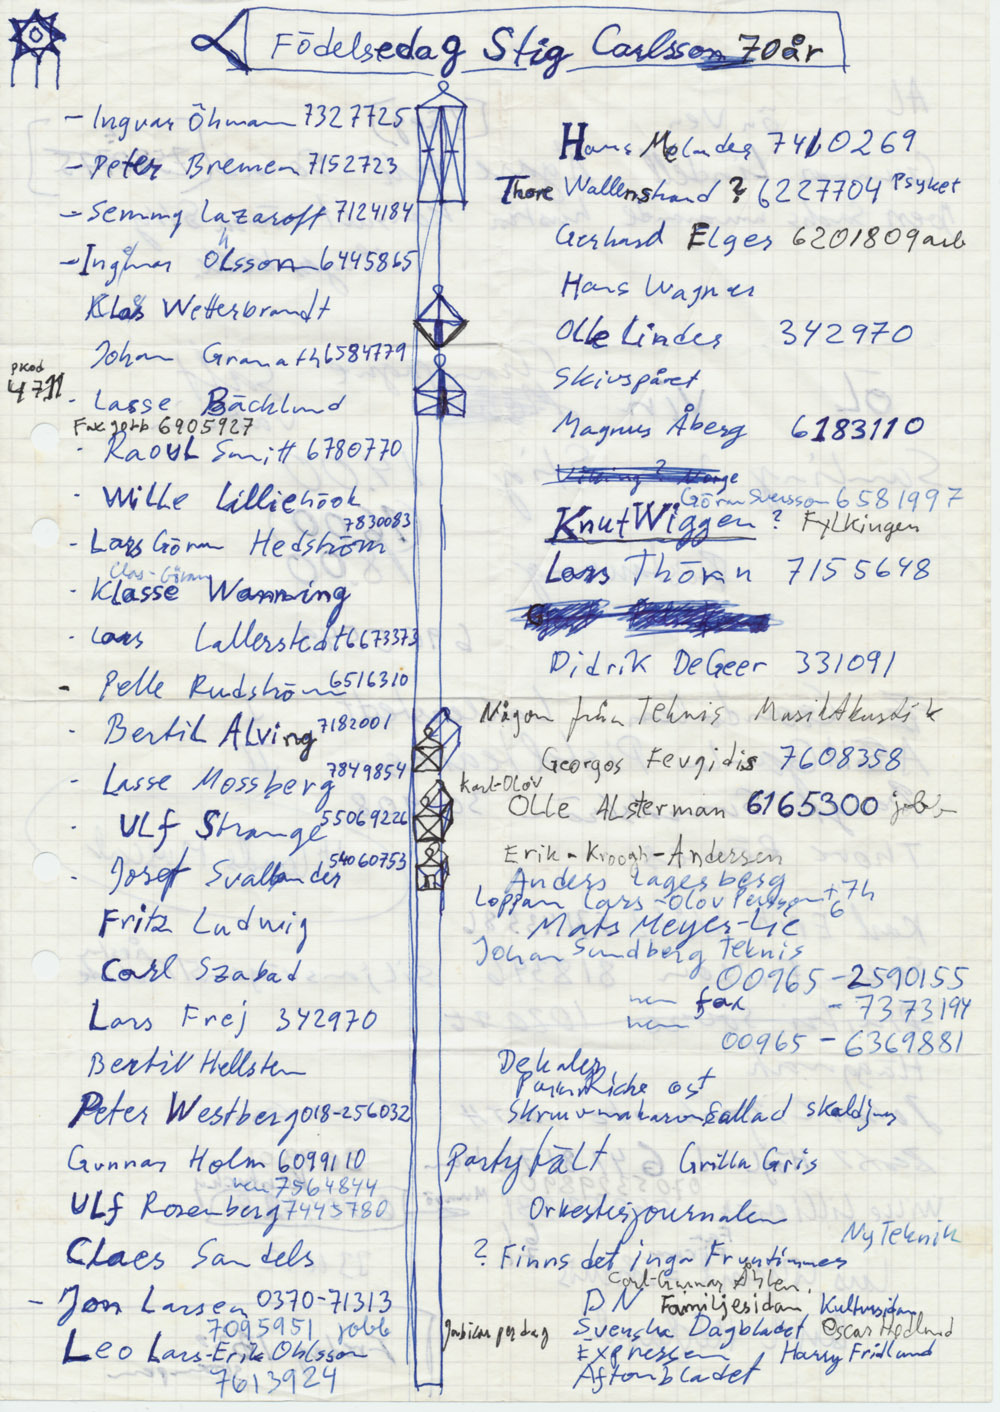 Födelsedag Stig Carlsson 70år
- Ingvar Öhman 7327725
- Peter Bremen 7152723
- Semmy Lazaroff 7124184
- Ingmar Ohlsson 6445865
Klas Wetterbrandt
Johan Granath 6584779
PKod
4711
- Lasse Bäcklund
Fax jobb 6905927
- Raoul Smitt 6780770
- Wille Lilliehöök
7830083
- Lars Göran Hedström
Clas-Göran
- Klasse Wanning
- Lars Lallerstedt 6673373
- Pelle Rudström 6516310
- Bertil Alving 7182001
- Lasse Mossberg 7849854
- Ulf Strange 55069226
- Josef Svalander 54060753
Fritz Ludwig
Carl Szabad
Lars Frej 342970
Bertil Hellsten
Peter Westberg 018-256032
Gunnar Holm 6099110
7564844
Ulf Rosenberg 7445780
Claes Sandels
- Jon Larsen 0370-71313
7095951 jobb
Leo Lars-Erik Ohlsson
7613924
Hans Melander 7410269
Thore Wallenstrand ? 6227704 Psyket
Gerhard Elger 6201809 arb
Hans Wagner
Olle Linder 342970
Skivspåret
Magnus Åberg 6183110
Viking ? Norge
Göran Svensson 6581997
Knut Wiggen ? Fylkingen
Lars Thörn 7155648
Didrik DeGeer 331091
Någon från Teknis MusikAkustik
Georgos Fevgidis 7608358
Karl-Olov
Olle Alsterman 6165300 jobb
Erik - Kroogh-Andersen
Anders Lagerberg
Loppan Lars-Olov Persson + 7h
6
Mats Meyer-Lie
Johan Sundberg Teknis
00965-2590155
fax - 7373194
00965-6369881
Dekaler
ost
sallad skaldjur
Partytält Grilla Gris
Orkesterjournalen
Ny Teknik
? Finns det inga Fruntimmer
Carl-Gunnar Åhlen
DN Familjesidan, Kultursidan
Svenska Dagbladet Oscar Hedlund
Expressen Harry Fridlund
Aftonbladet